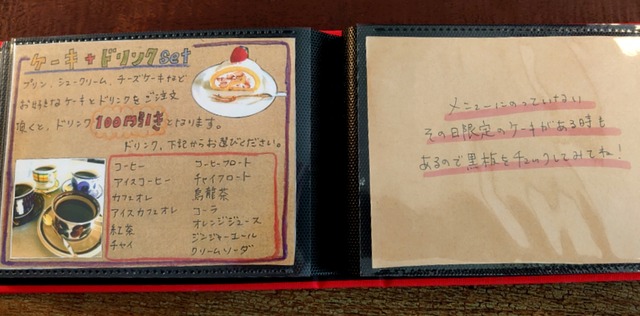 ケーキ+ドリンクset
プリン、シュークリーム、チーズケーキなど
お好きなケーキとドリンクをご注文
頂くと、ドリンク100円引きとなります。
ドリンク、下記からお選びください。
コーヒー
アイスコーヒー
カフェオレ
アイスカフェオレ
紅茶
チャイ
コーヒーフロート
チャイフロート
烏龍茶
コーラ
オレンジジュース
ジンジャーエール
クリームソーダ
メニューにのっていない
その日限定のケーキがある時も
あるので黒板をチェックしてみてね!